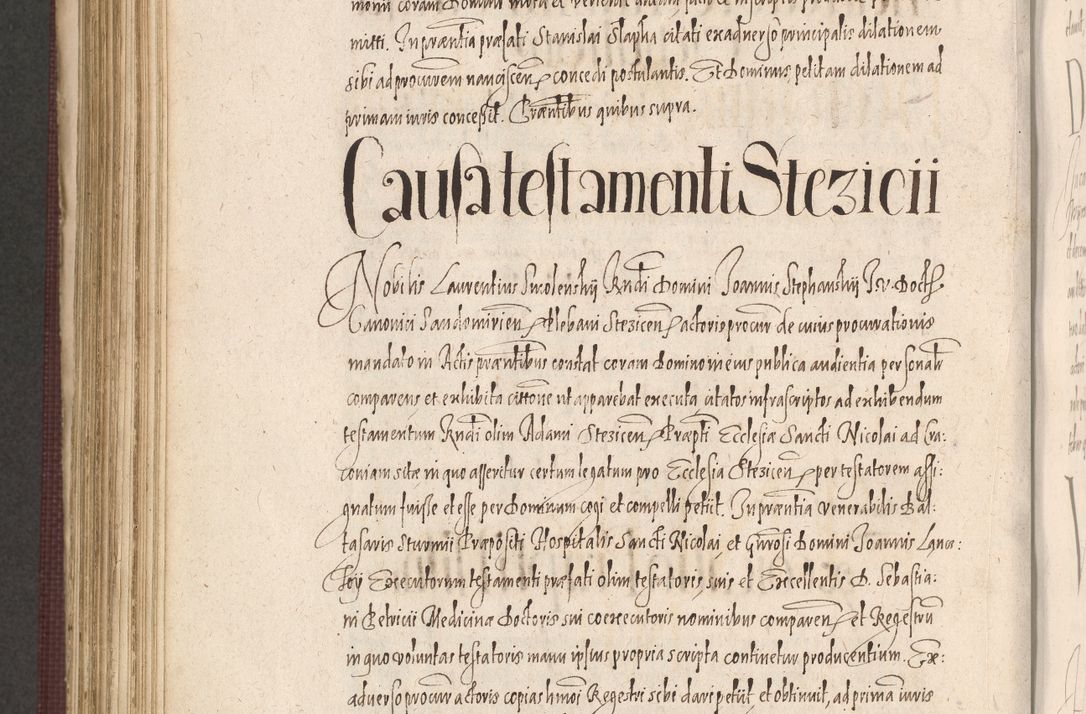 mitti. In præntia præfati Stanislai Slapha citati exadverso principalis dilationem
sibi ad procurem nanciscen et concedi postulantis. Et Dominus petitam dilationem ad
primam iuris concessit. Præntibus quibus supra.
Causa testamenti Stezicii
Nobilis Laurentius Smolenskij Rndi Domini Joannis Stephanskij Iur. Doct
Canonici Sandomirien Plebani Stezicen actoris procur de cuius procurationis
mandato in Actis præntibus constat coram Domino in eius publica audientia personalr
comparens et exhibita cittone ut apparebat executa citatos infrascriptos ad exhibendum
testamentum Rndi olim Adami Stezicen Præpti Ecclesiæ Sancti Nicolai ad Cra:
coviam sitæ in quo asseritur certum legatum pro Ecclesia Stezicen per testatorem assi:
gnatum fuisse et esse per Dominum cogi et compelli petiit. In præntia venerabilis Bal:
tasaris Sturmii Præpositi Hospitalis Sancti Nicolai et Gnrosi Domini Joannis
Executorum testamenti præfati olim testatoris, suis et Excellentis D. Sebastia:
ni Petricii Medicinæ Doctoris sui coexecutoris nominibus comparen et Regestrū
in quo voluntas testatoris manu ipsius propria scripta continetur producentium. Ex:
adverso procur actoris copias hmoi Regestri sibi dari petiit, et obtinuit, ad primā iuris